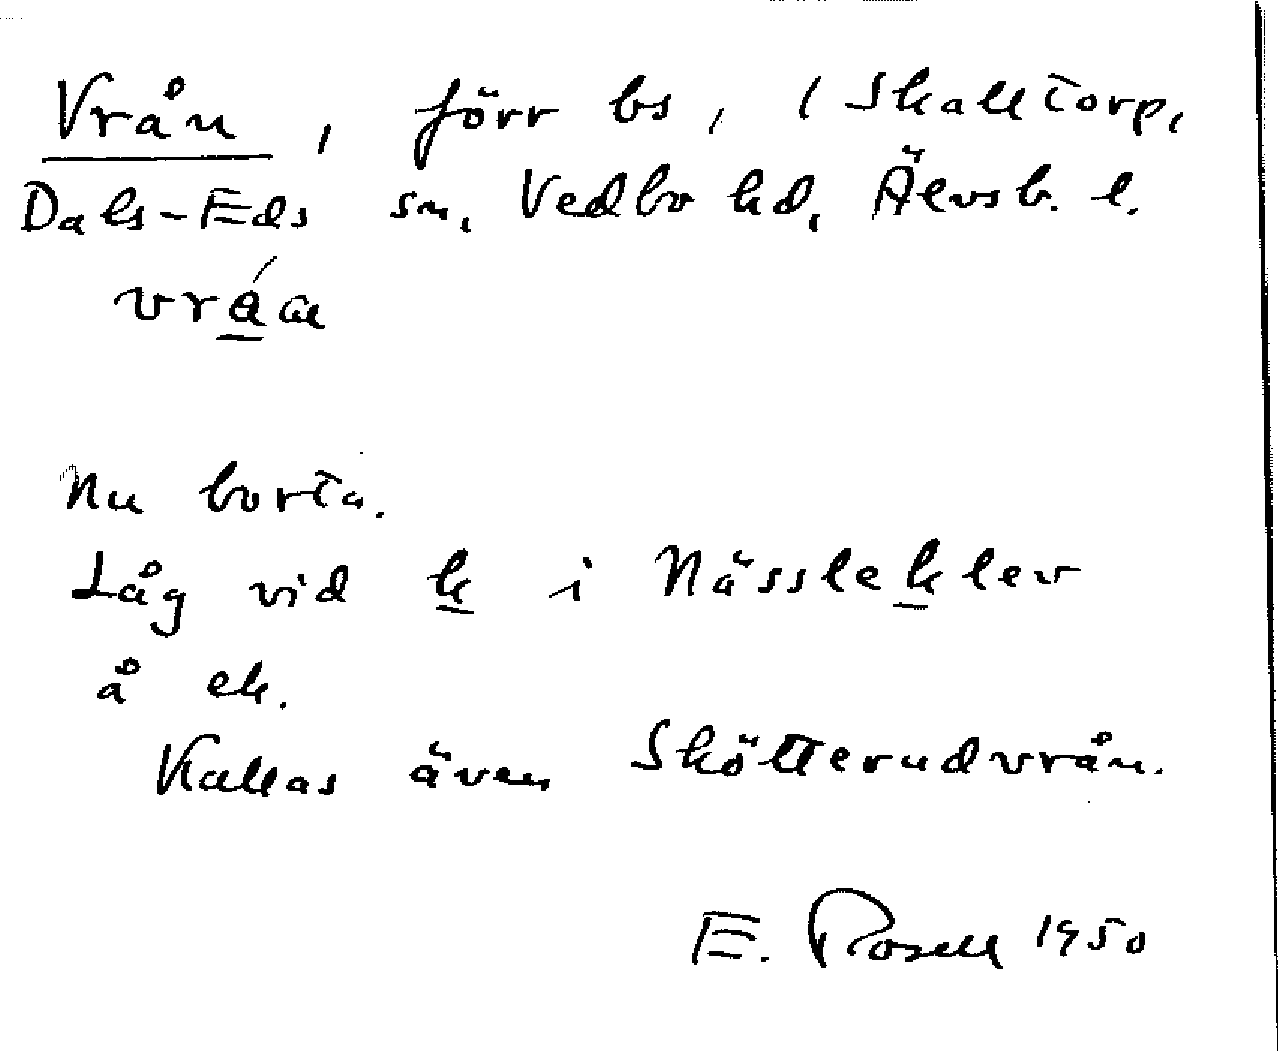 Vrån, förr bs, i Skälltorp,
Dals-Eds sn, Vedbo hd, Älvsb. l.
vráa
Nu borta.
Låg vid k i Nässleklev
å ek.
Kallas även Skötterudvrån.
E. Rosell 1950